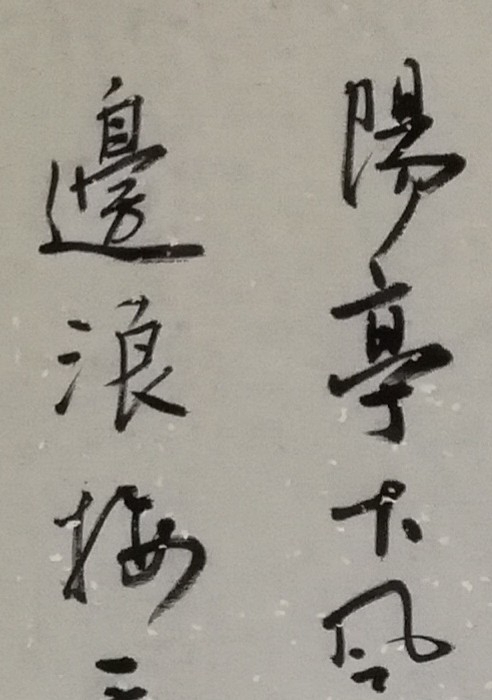 陽亭下風
邊浪接